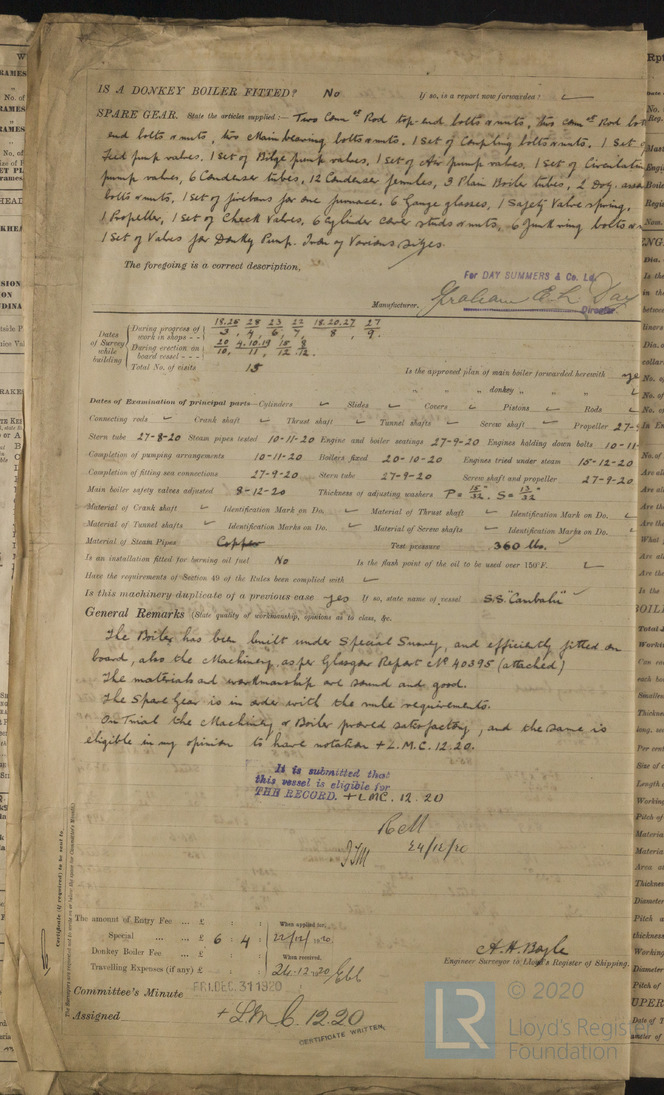 IS A DONKEY BOILER FITTED? No If so, is a report now forwarded?
SPARE GEAR. State the articles supplied:— Two Conn g Rod top-end bolts & nuts, two conn g Rod bot
end bolts & nuts, two Main bearing bolts & nuts. 1 Set of Coupling bolts & nuts. 1 Set of
Feed pump valves. 1 Set of Bilge pump valves. 1 Set of Air pump valves. 1 Set of Circulatin
pump valves, 6 Condenser tubes, 12 Condenser ferrules, 3 Plain Boiler tubes, 2 Doz. asso
bolts & nuts. 1 Set of firebars for one furnace. 6 Gauge glasses, 1 Safety Valve spring.
1 Propeller, 1 Set of Check Valves. 6 Cylinder cover studs & nuts, 6 Junk ring bolts &
1 Set of Valves for Donkey Pump. Iron of Various sizes.
The foregoing is a correct description,
For DAY SUMMERS & Co. Ltd.
Manufacturer. Graham E. L. Day
Director
Dates of Survey while building
During progress of work in shops - -
During erection on board vessel - - -
Total No. of visits 15
Is the approved plan of main boiler forwarded herewith yes
" " " donkey " "
Dates of Examination of principal parts—Cylinders Slides Covers Pistons Rods
Connecting rods Crank shaft Thrust shaft Tunnel shafts Screw shaft Propeller 27-
Stern tube 27-8-20 Steam pipes tested 10-11-20 Engine and boiler seatings 27-9-20 Engines holding down bolts 10-11-
Completion of pumping arrangements 10-11-20 Boilers fixed 20-10-20 Engines tried under steam 15-12-20
Completion of fitting sea connections 27-9-20 Stern tube 27-9-20 Screw shaft and propeller 27-9-20
Main boiler safety valves adjusted 8-12-20 Thickness of adjusting washers P = 15/32. S = 13/32
Material of Crank shaft Identification Mark on Do. Material of Thrust shaft Identification Mark on Do.
Material of Tunnel shafts Identification Marks on Do. Material of Screw shafts Identification Marks on Do.
Material of Steam Pipes Copper Test pressure 360 lbs.
Is an installation fitted for burning oil fuel No Is the flash point of the oil to be used over 150°F.
Have the requirements of Section 49 of the Rules been complied with
Is this machinery duplicate of a previous case yes If so, state name of vessel S.S.
General Remarks (State quality of workmanship, opinions as to class, &c.
The Boiler has been built under Special Survey, and efficiently fitted on
board, also the Machinery as per Glasgow Report No 40395 (attached)
The materials and workmanship are sound and good.
The Spare Gear is in order with the rule requirements.
On Trial the Machinery & Boiler proved satisfactory, and the same is
eligible in my opinion to have notation + L.M.C. 12.20.
It is submitted that
this vessel is eligible for
THE RECORD. + LMC. 12.20
24/12/20
Certificate (if required) to be sent to
The amount of Entry Fee ... £ : : When applied for,
Special ... ... £ 6 : 4 : 22/12/1920
Donkey Boiler Fee ... £ : : When received,
Travelling Expenses (if any) £ : : 24.12.1920
A. H. Boyle
Engineer Surveyor to Lloyd's Register of Shipping.
Committee's Minute FRI. DEC. 31 1920
Assigned + L.M.C. 12.20
CERTIFICATE WRITTEN.
© 2020
Lloyd's Register
Foundation